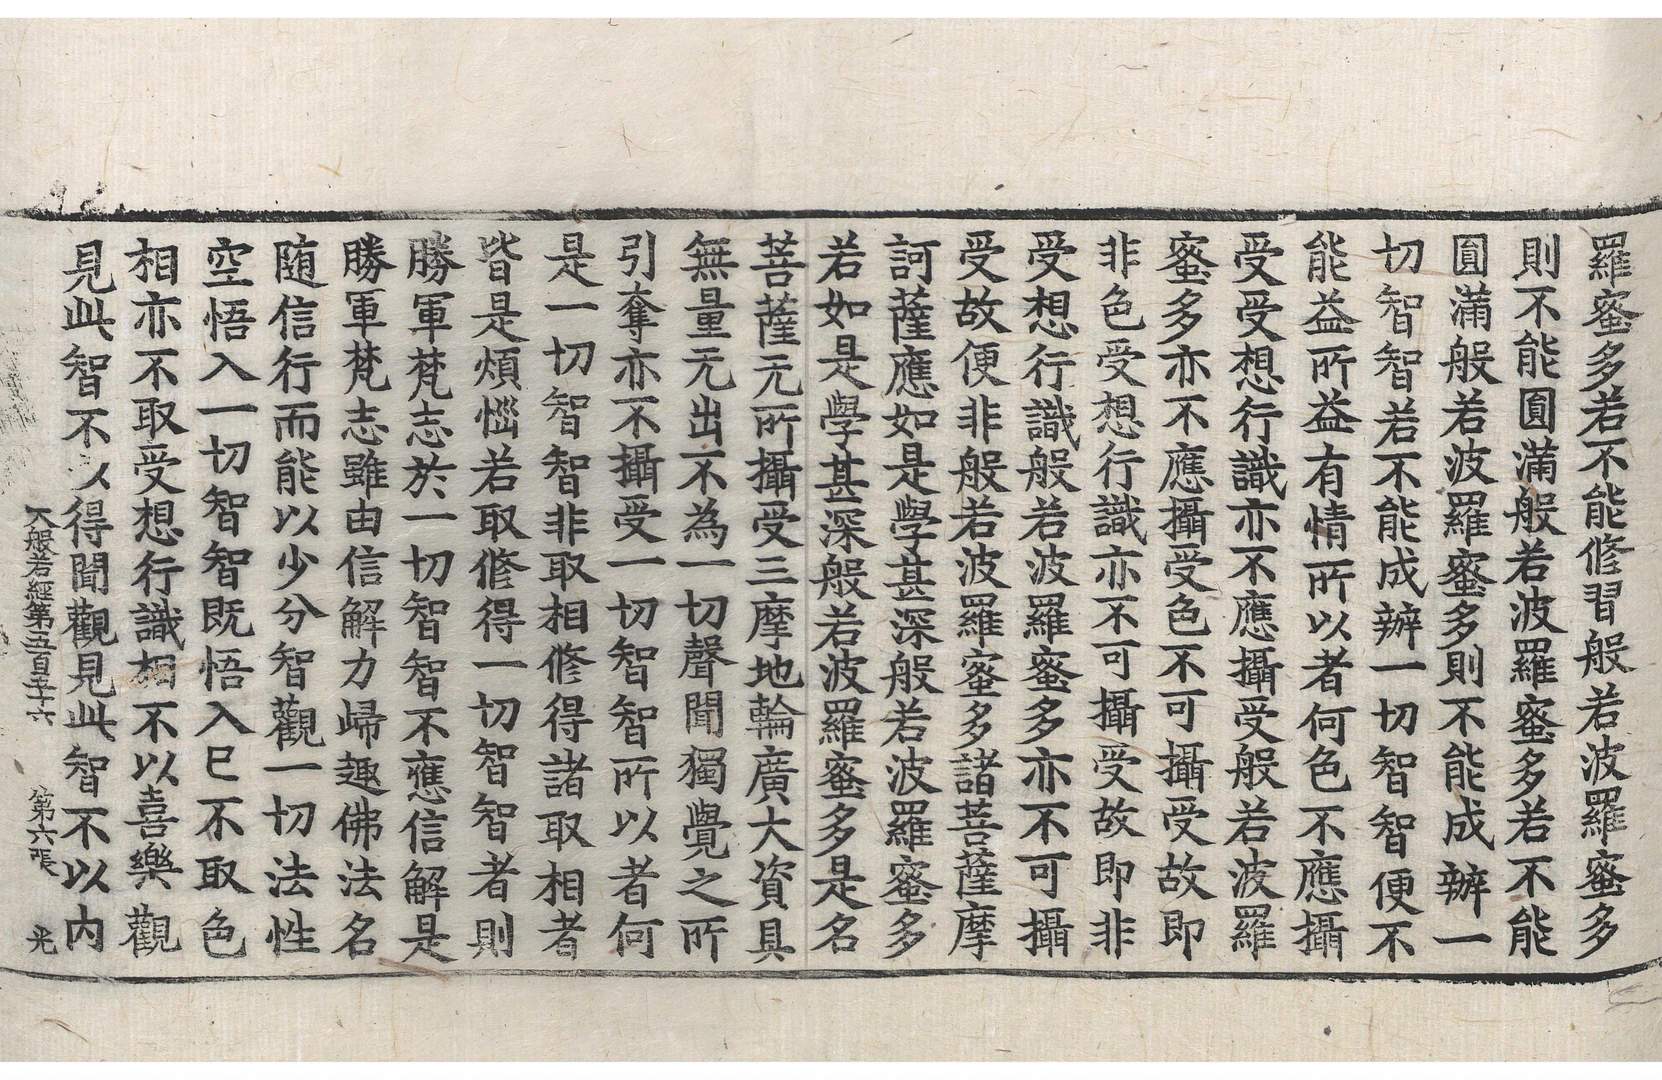 羅蜜多若不能修習般若波羅蜜多
則不能圓滿般若波羅蜜多若不能
圓滿般若波羅蜜多則不能成辦一
切智智若不能成辦一切智智便不
能益所益有情所以者何色不應攝
受受想行識亦不應攝受般若波羅
蜜多亦不應攝受色不可攝受故即
非色受想行識亦不可攝受故即非
受想行識般若波羅蜜多亦不可攝
受故便非般若波羅蜜多諸菩薩摩
訶薩應如是學甚深般若波羅蜜多
若如是學甚深般若波羅蜜多是名
菩薩无所攝受三摩地輪廣大資具
無量无出不為一切聲聞獨覺之所
引奪亦不攝受一切智智所以者何
是一切智智非取相修得諸取相者
皆是煩惱若取修得一切智智者則
勝軍梵志於一切智智不應信解是
勝軍梵志雖由信解力歸趣佛法名
随信行而能以少分智觀一切法性
空悟入一切智智既悟入已不取色
相亦不取受想行識相不以喜樂觀
見此智不以得聞觀見此智不以內
大般若經第五百五十六 第六張 光